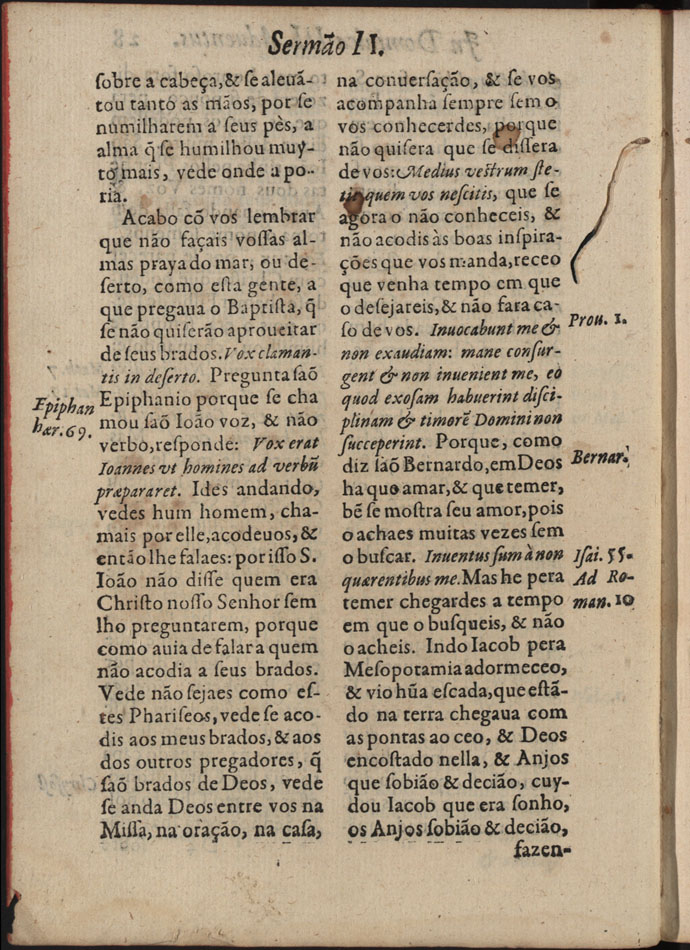 Sermão II.
sobre a cabeça,& se aleuã-
tou tanto as mãos, por se
numilharem a seus pès, a
alma q̃ se humilhou muy-
to mais, vede onde a po-
ria.
Acabo cõ vos lembrar
que não façais vossas al-
mas praya do mar, ou de-
serto, como esta gente, a
que pregaua o Baptista, q̃
se não quiserão aproueitar
de seus brados. Vox claman-
tis in deserto. Pregunta saõ
Epiphanio porque se cha
mou saõ Ioão voz, & não
verbo, responde: Vox erat
Ioannes vt homines ad verbũ
præpararet. Ides andando,
vedes hum homem, cha-
mais por elle, acodeuos, &
então lhe falaes: por isso S.
Ioão não disse quem era
Christo nosso Senhor sem
lho preguntarem, porque
como auia de falar a quem
não acodia a seus brados.
Vede não sejaes como es-
tes Phariseos, vede se aco-
dis aos meus brados, & aos
dos outros pregadores, q̃
saõ brados de Deos, vede
se anda Deos entre vos na
Missa, na oração, na casa,
Epiphan
hær. 69.
na conuersação, & se vos
acompanha sempre sem o
vos conhecerdes, porque
não quisera que se dissera
de vos: Medius vestrum ste-
tit quem vos nescitis, que se
agora o não conheceis, &
não acodis às boas inspira-
ções que vos manda, receo
que venha tempo em que
o desejareis, & não fara ca-
so de vos. Inuocabunt me &
non exaudiam: mane consur-
gent & non inuenient me, eo
quod exosam habuerint disci-
plinam & timorẽ Domini non
succeperint. Porque, como
diz saõ Bernardo, em Deos
ha que amar, & que temer,
bẽ se mostra seu amor, pois
o achaes muitas vezes sem
o buscar. Inuentus sum à non
quærentibus me. Mas he pera
temer chegardes a tempo
em que o busqueis, & não
o acheis. Indo Iacob pera
Mesopotamia adormeceo,
& vio hũa escada, que estã-
do na terra chegaua com
as pontas ao ceo, & Deos
encostado nella, & Anjos
que sobião & decião, cuy-
dou Iacob que era sonho,
os Anjos sobião & decião,
fazen-
Prou. 1.
Bernar.
Isai. 55.
Ad Ro-
man. 10